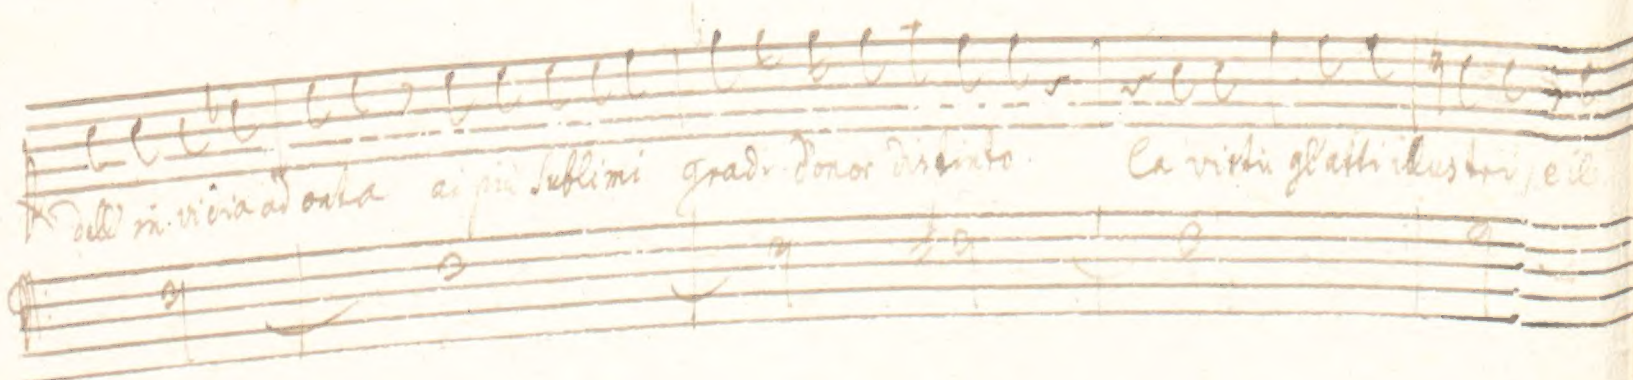 dell' in-vidia ad onta ai più sublimi gradi d'onor distinto. la virtù gl'atti illustri, e il